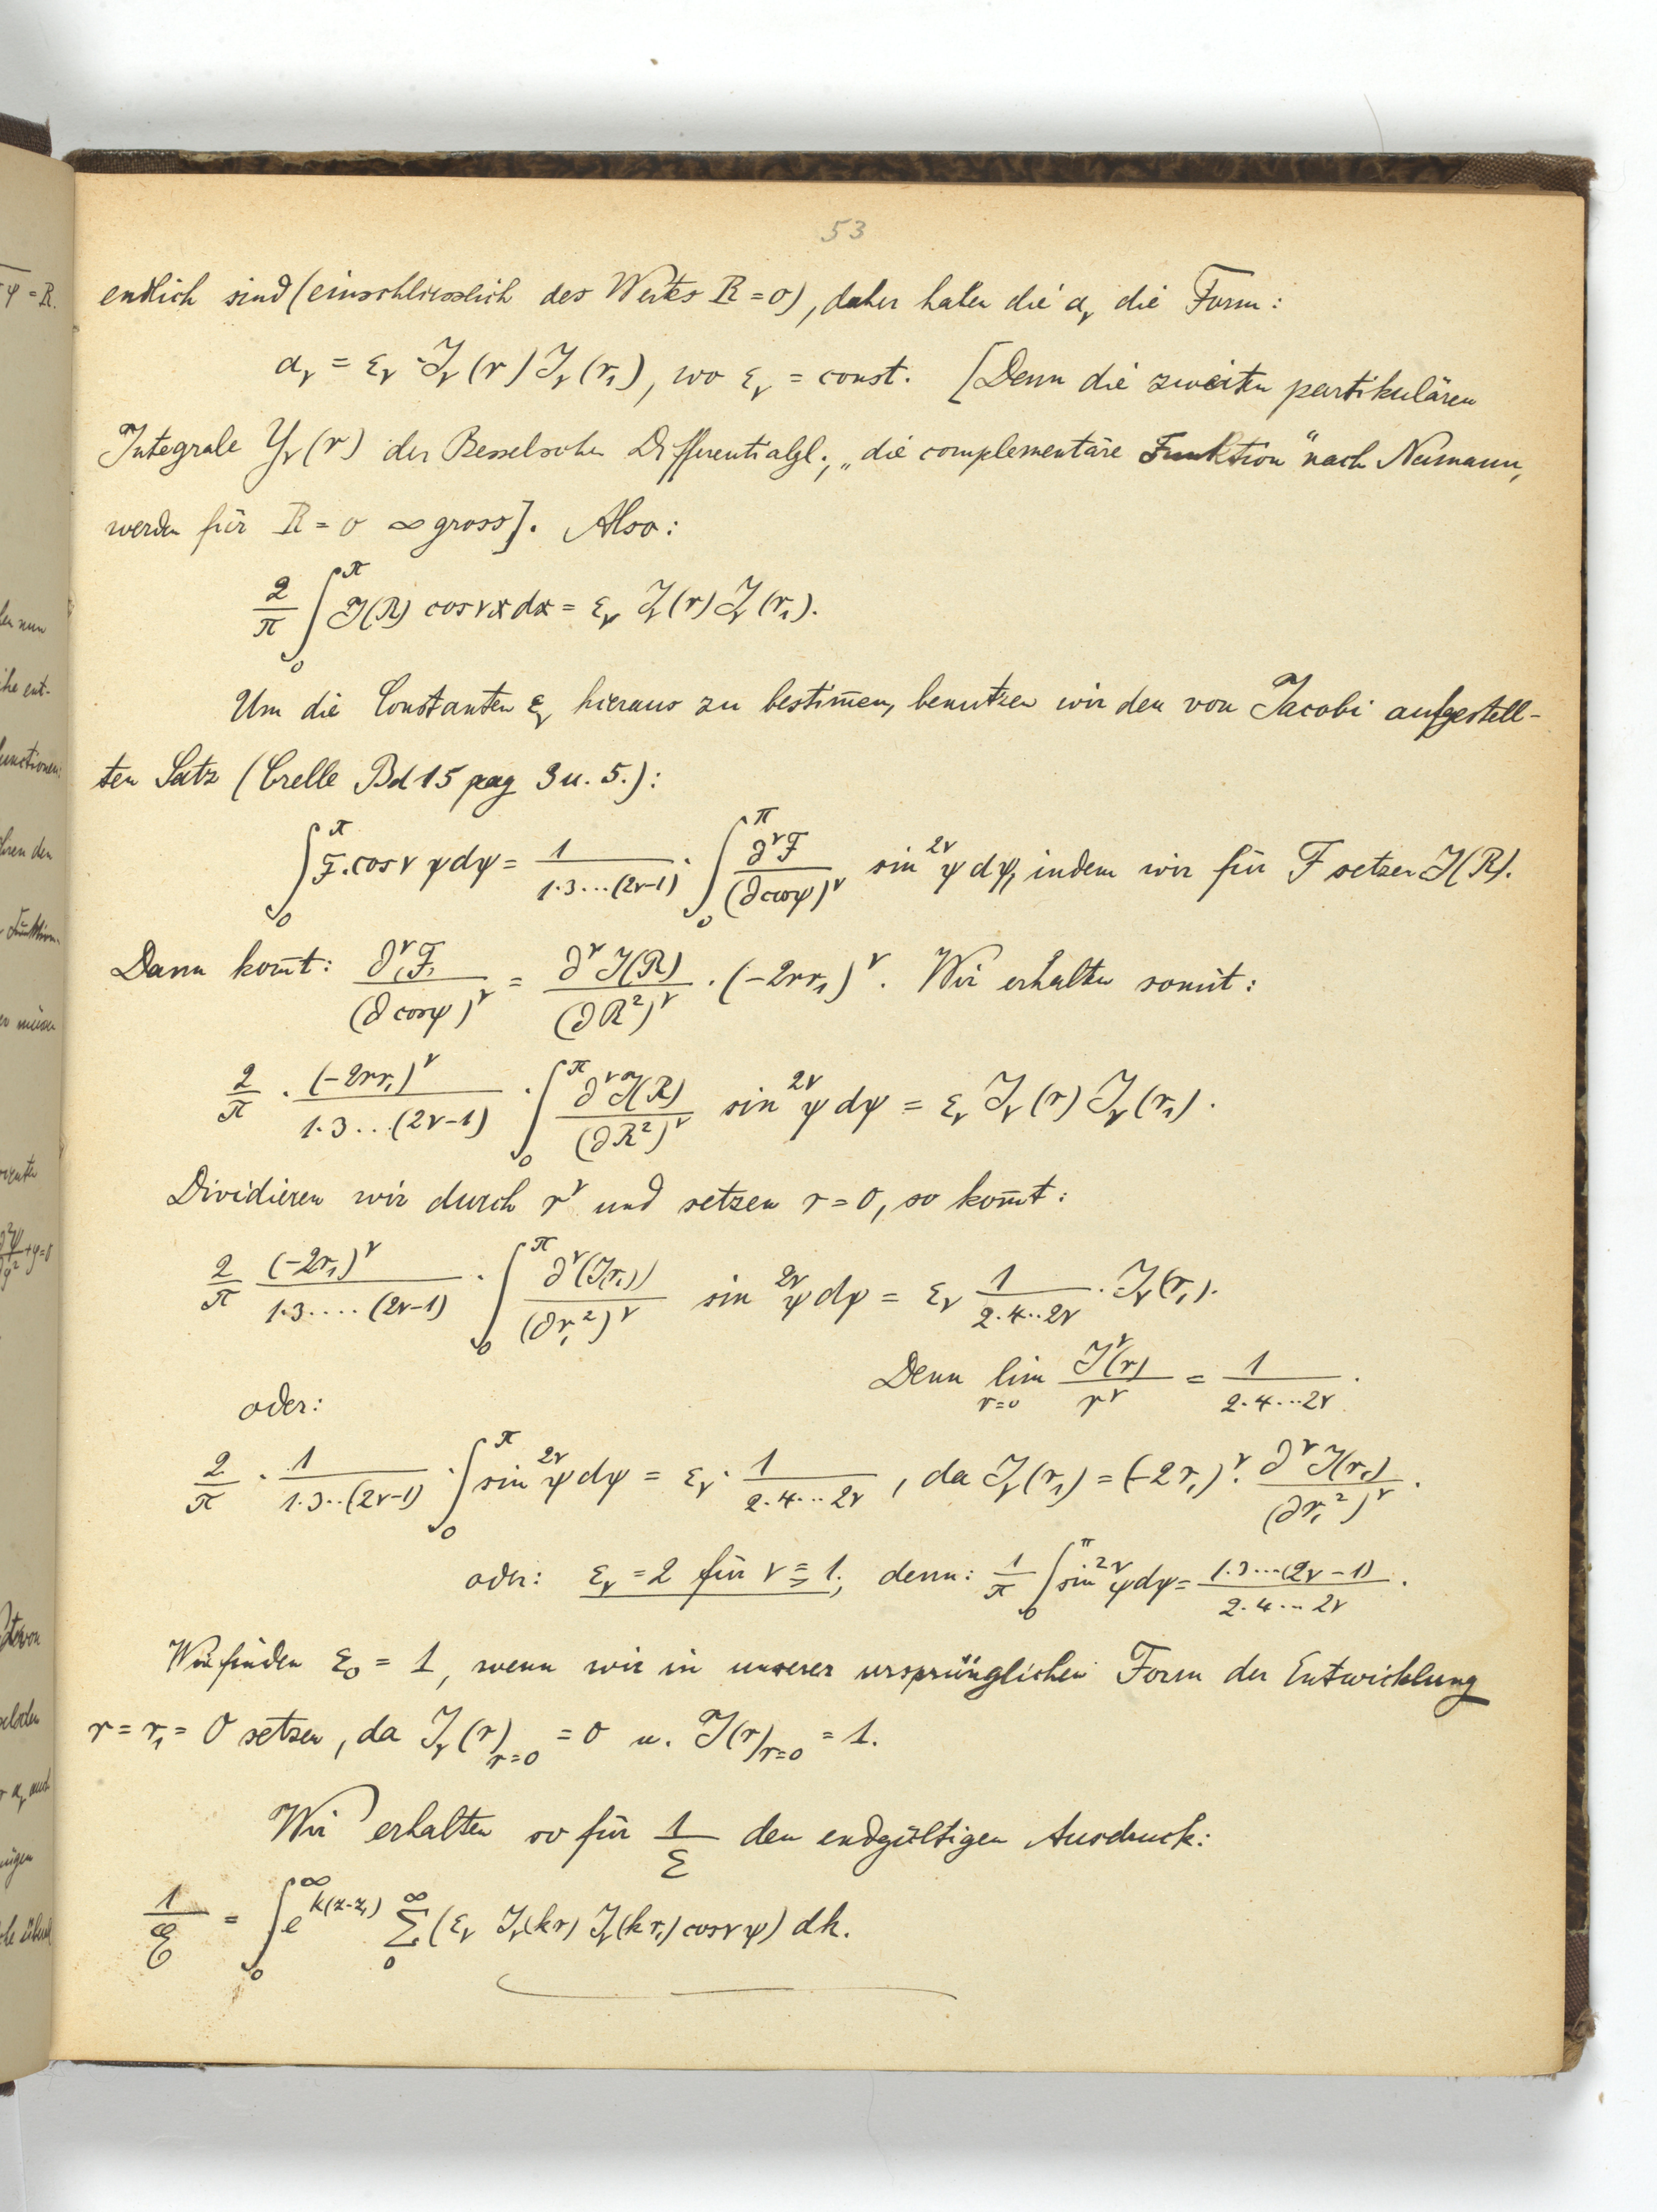 53
endlich sind (einschliesslich des Wertes R = 0), daher haben die α_ν die Form:
α_ν = ε_ν · J_ν(r) J_ν(r₁), wo ε_ν = const. [Denn die zweiten partikulären
Integrale Y_ν(r) der Besselschen Differentialgl., „die complementäre Funktion" nach Neumann,
werden für R = 0 ∞ gross]. Also:
2/π ∫₀^π J(R) cos νx dx = ε_ν J_ν(r) J_ν(r₁).
Um die Constanten ε_ν hieraus zu bestim̄en, benutzen wir den von Jacobi aufgestell-
ten Satz (Crelle Bd 15 pag 3 u. 5.):
∫₀^π F. cos ν ψ dψ = 1/(1·3···(2ν-1)) · ∫₀^π ∂^νF/(∂cosψ)^ν sin^2ν ψ dψ, indem wir für F setzen J(R).
Dann kom̄t: ∂^νF/(∂cosψ)^ν = ∂^νJ(R)/(∂R²)^ν · (-2rr₁)^ν. Wir erhalten somit:
2/π · (-2rr₁)^ν/(1·3...(2ν-1)) · ∫₀^π ∂^νJ(R)/(∂R²)^ν sin^2ν ψ dψ = ε_ν J_ν(r) J_ν(r₁).
Dividieren wir durch r^ν und setzen r = 0, so kom̄t:
2/π (-2r₁)^ν/(1·3....(2ν-1)) · ∫₀^π ∂^ν(J(r₁))/(∂r₁²)^ν sin^2ν ψ dψ = ε_ν 1/(2·4··2ν) · J_ν(r₁).
Denn lim_{r=0} J^ν(r)/r^ν = 1/(2·4···2ν).
oder:
2/π · 1/(1·3··(2ν-1)) · ∫₀^π sin^2ν ψ dψ = ε_ν · 1/(2·4···2ν), da J_ν(r₁) = (-2r₁)^ν · ∂^νJ(r₁)/(∂r₁²)^ν.
oder: ε_ν = 2 für ν ≧ 1; denn: 1/π ∫₀^π sin^2ν ψ dψ = 1·3···(2ν-1)/(2·4··2ν).
Wir finden ε₀ = 1, wenn wir in unserer ursprünglichen Form der Entwicklung
r = r₁ = 0 setzen, da J_ν(r)_{r=0} = 0 u. J(r)_{r=0} = 1.
Wir erhalten so für 1/E den endgültigen Ausdruck:
1/E = ∫₀^∞ e^{k(z-z₁)} Σ₀^∞ (ε_ν J_ν(kr) J_ν(kr₁) cos ν ψ) dk.